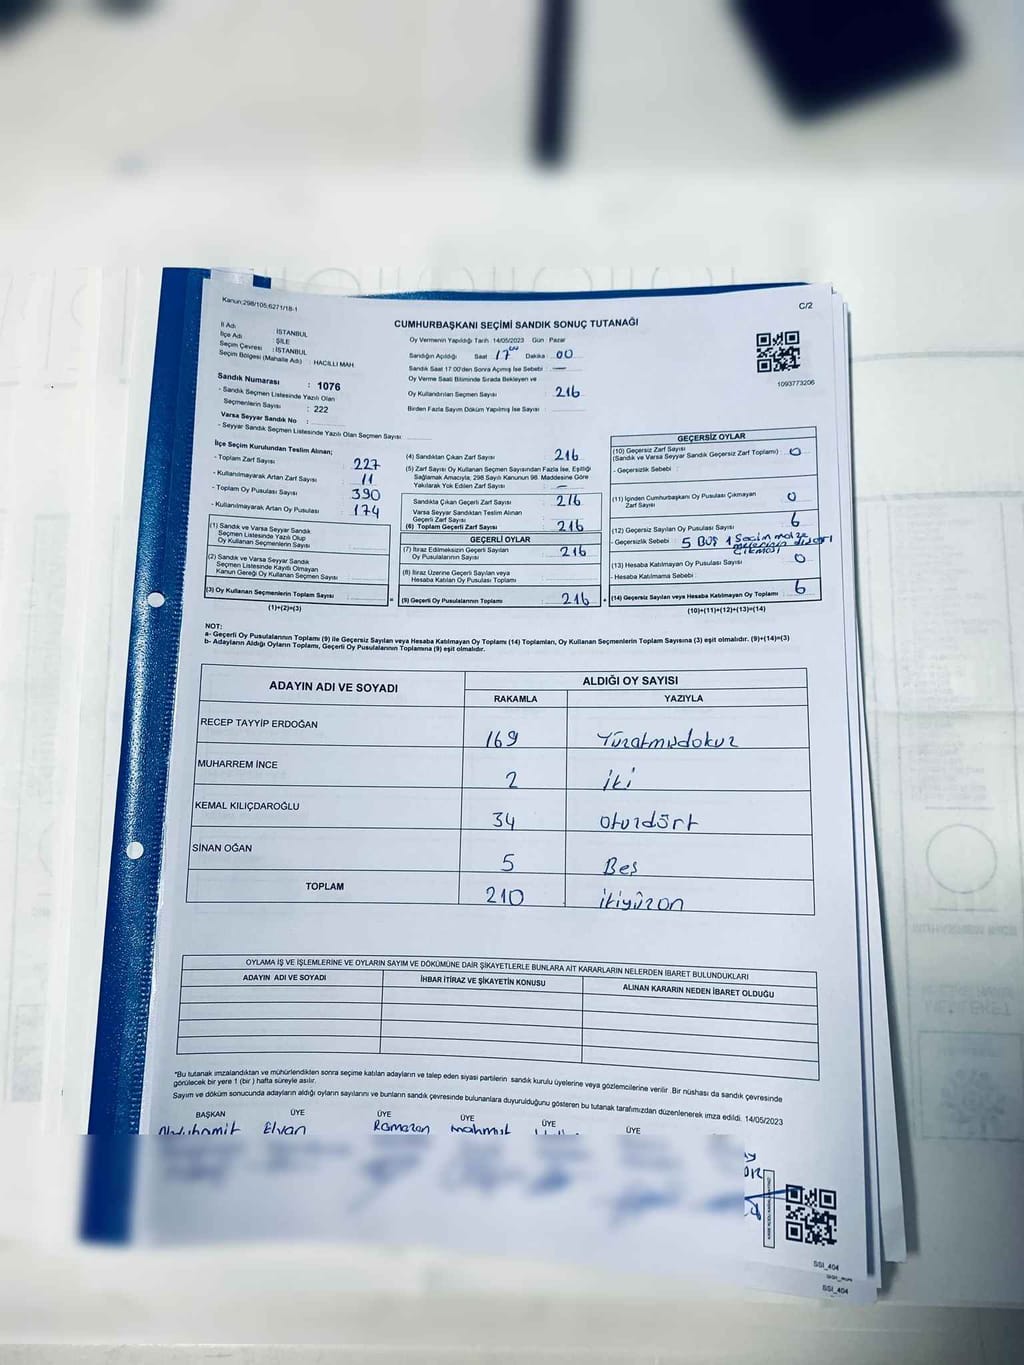 Kanun:298/105;6271/18-1
C/2
CUMHURBAŞKANI SEÇİMİ SANDIK SONUÇ TUTANAĞI
İl Adı : İSTANBUL
İlçe Adı : ŞİLE
Seçim Çevresi : İSTANBUL
Seçim Bölgesi (Mahalle Adı) : HACILLI MAH.
Sandık Numarası : 1076
- Sandık Seçmen Listesinde Yazılı Olan
Seçmenlerin Sayısı : 222
Varsa Seyyar Sandık No :
- Seyyar Sandık Seçmen Listesinde Yazılı Olan Seçmen Sayısı:
Oy Vermenin Yapıldığı Tarih :14/05/2023 Gün : Pazar
Sandığın Açıldığı Saat : 17 00 Dakika : 00
Sandık Saat 17.00'den Sonra Açılmış İse Sebebi : —
Oy Verme Saati Bitiminde Sırada Bekleyen ve
Oy Kullandırılan Seçmen Sayısı : 216
Birden Fazla Sayım Döküm Yapılmış İse Sayısı :
1093773206
İlçe Seçim Kurulundan Teslim Alınan;
- Toplam Zarf Sayısı : 227
- Kullanılmayarak Artan Zarf Sayısı : 11
- Toplam Oy Pusulası Sayısı : 390
- Kullanılmayarak Artan Oy Pusulası : 174
(1) Sandık ve Varsa Seyyar Sandık
Seçmen Listesinde Yazılı Olup
Oy Kullanan Seçmenlerin Sayısı :
(2) Sandık ve Varsa Seyyar Sandık
Seçmen Listesinde Kayıtlı Olmayan
Kanun Gereği Oy Kullanan Seçmen Sayısı :
(3) Oy Kullanan Seçmenlerin Toplam Sayısı :
(1)+(2)=(3)
(4) Sandıktan Çıkan Zarf Sayısı : 216
(5) Zarf Sayısı Oy Kullanan Seçmen Sayısından Fazla İse, Eşitliği
Sağlamak Amacıyla; 298 Sayılı Kanunun 98. Maddesine Göre
Yakılarak Yok Edilen Zarf Sayısı : —
Sandıkta Çıkan Geçerli Zarf Sayısı : 216
Varsa Seyyar Sandıktan Teslim Alınan
Geçerli Zarf Sayısı :
(6) Toplam Geçerli Zarf Sayısı : 216
GEÇERLİ OYLAR
(7) İtiraz Edilmeksizin Geçerli Sayılan
Oy Pusulalarının Sayısı : 216
(8) İtiraz Üzerine Geçerli Sayılan veya
Hesaba Katılan Oy Pusulası Toplamı :
= (9) Geçerli Oy Pusulalarının Toplamı : 216 +
GEÇERSİZ OYLAR
(10) Geçersiz Zarf Sayısı
(Sandık ve Varsa Seyyar Sandık Geçersiz Zarf Toplamı) : 0
- Geçersizlik Sebebi :
(11) İçinden Cumhurbaşkanı Oy Pusulası Çıkmayan
Zarf Sayısı : 0
(12) Geçersiz Sayılan Oy Pusulası Sayısı : 6
- Geçersizlik Sebebi : 5 BOŞ 1 Seçim
(13) Hesaba Katılmayan Oy Pusulası Sayısı : 0
- Hesaba Katılmama Sebebi :
(14) Geçersiz Sayılan veya Hesaba Katılmayan Oy Toplamı : 6
(10)+(11)+(12)+(13)=(14)
NOT:
a- Geçerli Oy Pusulalarının Toplamı (9) ile Geçersiz Sayılan veya Hesaba Katılmayan Oy Toplamı (14) Toplamları, Oy Kullanan Seçmenlerin Toplam Sayısına (3) eşit olmalıdır. (9)+(14)=(3)
b- Adayların Aldığı Oyların Toplamı, Geçerli Oy Pusulalarının Toplamına (9) eşit olmalıdır.
ADAYIN ADI VE SOYADI
ALDIĞI OY SAYISI
RAKAMLA YAZIYLA
RECEP TAYYİP ERDOĞAN 169 Yüzatmışdokuz
MUHARREM İNCE 2 iki
KEMAL KILIÇDAROĞLU 34 otuzdört
SİNAN OĞAN 5 Beş
TOPLAM 210 ikiyüzon
OYLAMA İŞ VE İŞLEMLERİNE VE OYLARIN SAYIM VE DÖKÜMÜNE DAİR ŞİKAYETLERLE BUNLARA AİT KARARLARIN NELERDEN İBARET BULUNDUKLARI
ADAYIN ADI VE SOYADI İHBAR İTİRAZ VE ŞİKAYETİN KONUSU ALINAN KARARIN NEDEN İBARET OLDUĞU
*Bu tutanak imzalandıktan ve mühürlendikten sonra seçime katılan adayların ve talep eden siyasi partilerin sandık kurulu üyelerine veya gözlemcilerine verilir. Bir nüshası da sandık çevresinde
görülecek bir yere 1 (bir ) hafta süreyle asılır.
Sayım ve döküm sonucunda adayların aldığı oyların sayılarını ve bunların sandık çevresinde bulunanlara duyurulduğunu gösteren bu tutanak tarafımızdan düzenlenerek imza edildi. 14/05/2023
BAŞKAN ÜYE ÜYE ÜYE ÜYE ÜYE
Abdulhamit Elvan Ramazan Mahmut
SSI_404
SSI_404